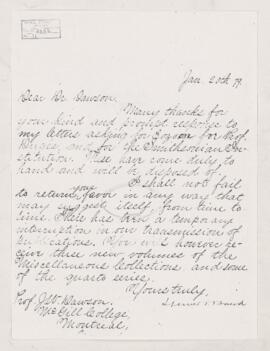 Jan. 20th 79.
Dear Dr Dawson.
Many thanks for
your kind and prompt response to
my letters asking for Eozoon for Prof.
and for the Smithsonian In-
stitution. These have come duly to
hand and will be disposed of.
I shall not fail
to return your favor in any way that
may suggest itself, from time to
time. There has been a temporary
interruption in our transmissions of
publications. You will however re-
ceive three new volumes of the
Miscellaneous Collections, and some
of the quarto series.
Yours truly,
Prof. J. W. Dawson.
McGill College,
Montreal.